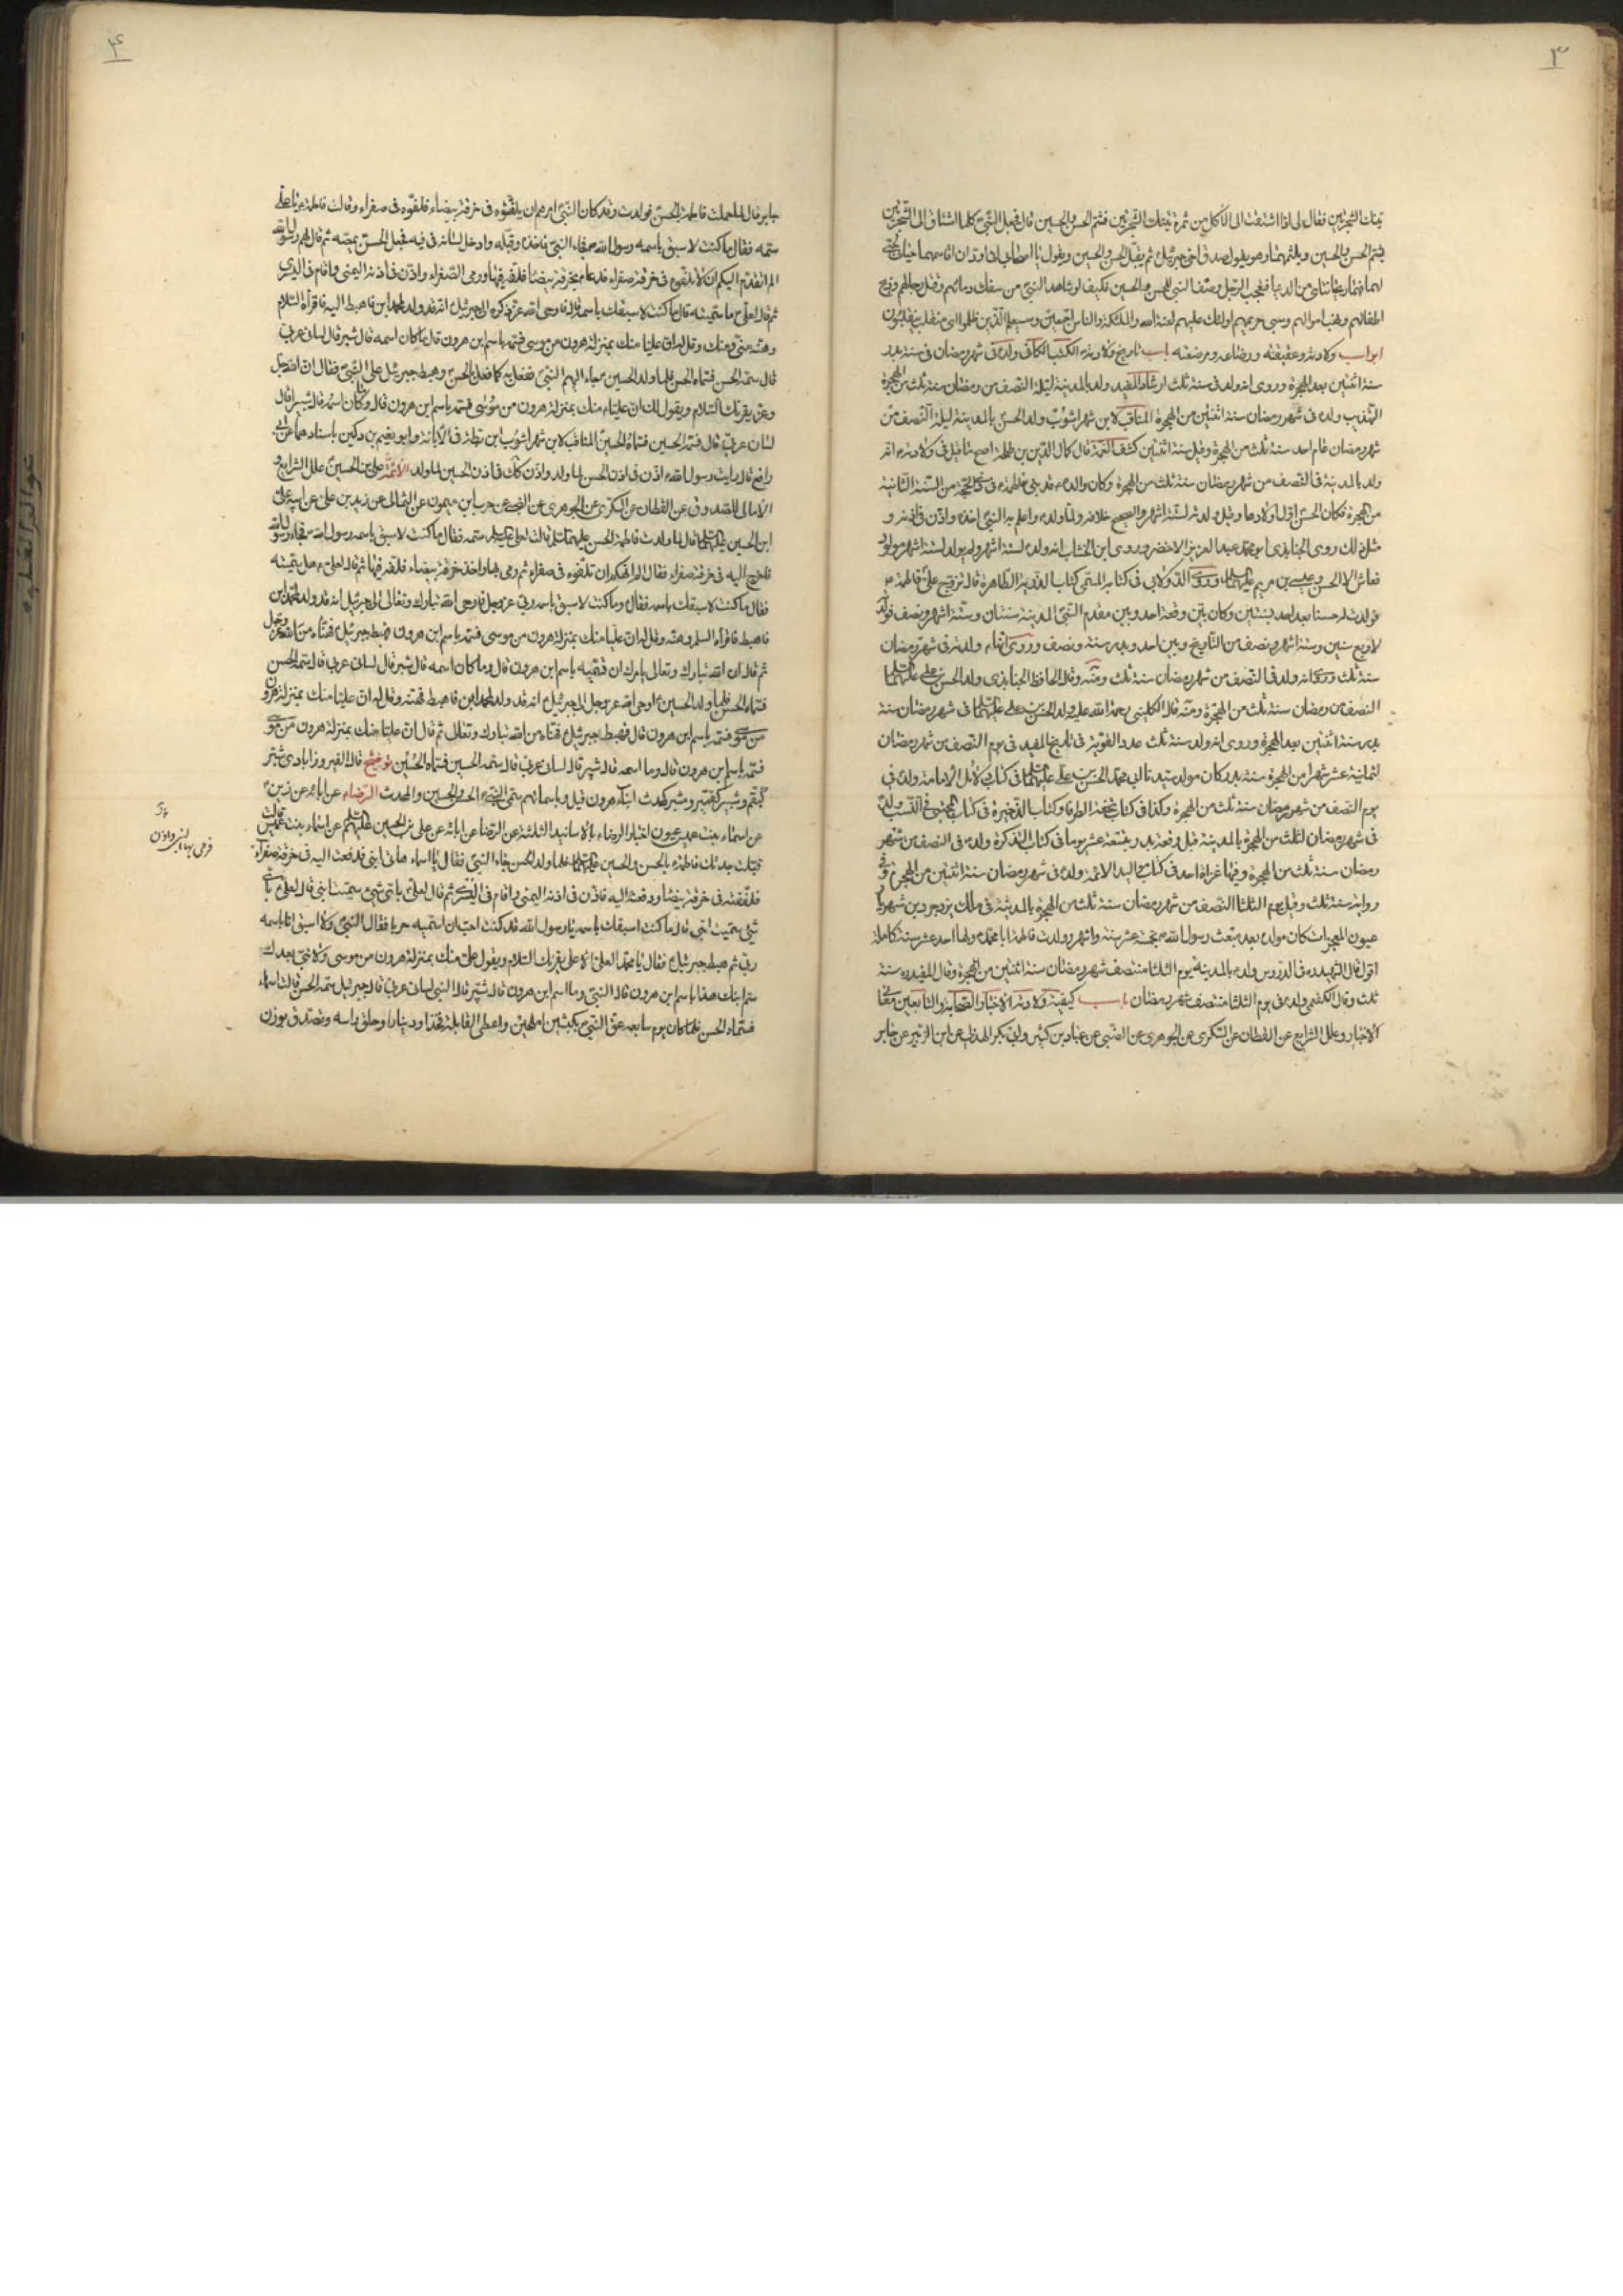 ٣
فقال لى اذا اشتقت الى الاكل من ثمرة فشم الحسن والحسين قال فجعل النبى كلما اشتاق الى الشجرتين
يشم الحسن والحسين ويلثمهما وهو يقول صدق اخى جبرئيل ثم يقبل الحسن والحسين ويقول يا اصحابى انى اود ان اقاسمهما حياتى لحبى
لهما فهما ريحانتاى من الدنيا فتعجب الرجل وصف النبى للحسن والحسين فكيف لو شاهد النبى من سفك دمائهم وقتل رجالهم وذبح
اطفالهم ونهب اموالهم وسبى حريمهم اولئك عليهم لعنة الله والملئكة والناس اجمعين وسيعلم الذين ظلموا اى منقلب ينقلبون
ابواب ولادته وعقيقته ورضاعه ومرضعته باب تاريخ ولادته الكتب الكافى ولد فى شهر رمضان فى سنة بدر
سنة اثنتين بعد الهجرة وروى انه ولد فى سنة ثلث ارشاد المفيد ولد بالمدينة ليلة النصف من رمضان سنة ثلث من الهجرة
التهذيب ولد فى شهر رمضان سنة اثنتين من الهجرة المناقب لابن شهراشوب ولد الحسن بالمدينة ليلة النصف من
شهر رمضان عام احد سنة ثلث من الهجرة وقيل سنة اثنتين كشف الغمة قال كمال الدين بن طلحة اصح ما قيل فى ولادته انه
ولد بالمدينة فى النصف من شهر رمضان سنة ثلث من الهجرة وكان والده قد بنى بفاطمة فى ذى الحجة من السنة الثانية
من الهجرة فكان الحسن اول اولادها وقيل ولدته لستة اشهر والصحيح خلافه ولما ولد واعلم به النبى اخذه واذن فى اذنه و
مثل ذلك روى الجنابذى ابو محمد عبد العزيز بن الاخضر وروى ابن الخشاب انه ولد لستة اشهر ولم يولد لستة اشهر مولود
فعاش الا الحسن وعيسى بن مريم وروى الدولابى فى كتابه المسمى كتاب الذرية الطاهرة قال تزوج على فاطمة
فولدت له حسنا بعد احد بسنتين وكان بين وقعة احد وبين مقدم النبى المدينة سنتان وستة اشهر ونصف فولد
لاربع سنين وستة اشهر ونصف من التاريخ وبين احد وبدر سنة ونصف وروى انها ولدته فى شهر رمضان
سنة ثلث وروى انه ولد فى النصف من شهر رمضان سنة ثلث ومنه وقال الحافظ الجنابذى ولد الحسن بن على
النصف من رمضان سنة ثلث من الهجرة ومنه قال الكلينى رحمة الله عليه ولد الحسن بن على فى شهر رمضان سنة
بدر سنة اثنتين بعد الهجرة وروى انه ولد سنة ثلث عدد القوية فى تاريخ المفيد فى يوم النصف من شهر رمضان
لثمانية عشر شهرا من الهجرة سنة بدر كان مولد سيدنا ابى محمد الحسن بن على فى كتاب دلائل الامامة ولد فى
يوم النصف من شهر رمضان سنة ثلث من الهجرة وكذا فى كتاب تحفة الظرفا وكتاب الذخيرة فى كتاب المجتبى فى النسب ولد
فى شهر رمضان لثلث من الهجرة بالمدينة قبل وقعة بدر بتسعة عشر يوما فى كتاب التذكرة ولد فى النصف من شهر
رمضان سنة ثلث من الهجرة وفيها غزاة احد فى كتاب مواليد الائمة ولد فى شهر رمضان سنة اثنتين من الهجرة وفى
رواية سنة ثلث وقيل يوم الثلثا النصف من شهر رمضان سنة ثلث من الهجرة بالمدينة فى ملك يزدجرد بن شهريار
عيون المعجزات كان مولده بعد مبعث رسول الله بخمسة عشر سنة واشهر وولدت فاطمة ابا محمد ولها احد عشر سنة كاملة
اقول قال الشهيد ره فى الدروس ولد بالمدينة يوم الثلثا منتصف شهر رمضان سنة اثنتين من الهجرة وقال المفيد ره سنة
ثلث وقال الكفعمى ولد فى يوم الثلثا منتصف شهر رمضان باب كيفية ولادته الاخبار الصحابة والتابعين معانى
الاخبار وعلل الشرايع عن القطان عن السكرى عن الجوهرى عن الضبى عن عباد بن كثير وابى بكر الهذلى عن ابى الزبير عن جابر
۴
جابر قال لما حملت فاطمة بالحسن فولدت وقد كان النبى امرهم ان يلفوه فى خرقة بيضاء فلفوه فى صفراء وقالت فاطمة يا على
سمه فقال ما كنت لاسبق باسمه رسول الله فجاء النبى فاخذه وقبله وادخل لسانه فى فيه فجعل الحسن يمصه ثم قال لهم رسول الله
الم اتقدم اليكم ان لا تلفوه فى خرقة صفراء فدعا بخرقة بيضا فلفه فيها ورمى الصفراء واذن فى اذنه اليمنى واقام فى اليسرى
ثم قال لعلى ما سميته قال ما كنت لاسبقك باسمه قال فاوحى الله عز ذكره الى جبرئيل انه قد ولد لمحمد ابن فاهبط اليه فاقرأه السلام
وهنه عنى ومنك وقل له ان عليا منك بمنزلة هرون من موسى فسمه باسم ابن هرون قال ما كان اسمه قال شبر قال لسانى عربى
قال سمه الحسن فسماه الحسن فلما ولد الحسين جاء اليهم النبى ففعل به كما فعل بالحسن وهبط جبرئيل على النبى فقال ان الله جل
وعز يقرئك السلام ويقول لك ان عليا منك بمنزلة هرون من موسى فسمه باسم ابن هرون قال وما كان اسمه قال شبيرا قال
لسانى عربى قال فسمه الحسين فسماه الحسين المناقب لابن شهراشوب ابن بطة فى الابانة وابو نعيم بن دكين باسنادهما عن ابى
رافع قال رايت رسول الله اذن فى اذن الحسن لما ولد واذن كذلك فى اذن الحسين لما ولد الائمة على بن الحسين علل الشرايع و
الامالى للصدوق عن القطان عن السكرى عن الجوهرى عن الضبى عن حرب بن ميمون عن الثمالى عن زيد بن على عن ابيه على
ابن الحسين قال لما ولدت فاطمة الحسن قالت لعلى سمه فقال ما كنت لاسبق باسمه رسول الله فجاء رسول الله
فاخرج اليه فى خرقة صفراء فقال الم انهكم ان تلفوه فى صفراء ثم رمى بها واخذ خرقة بيضاء فلفه فيها ثم قال لعلى هل سميته
فقال ما كنت لاسبقك باسمه فقال وما كنت لاسبق باسمه ربى عز وجل فاوحى الله تبارك وتعالى الى جبرئيل انه قد ولد لمحمد ابن
فاهبط فاقرأه السلم وهنه وقل له ان عليا منك بمنزلة هرون من موسى فسمه باسم ابن هرون فهبط جبرئيل فهناه من الله عز وجل
ثم قال ان الله تبارك وتعالى يامرك ان تسميه باسم ابن هرون قال وما كان اسمه قال شبر قال لسانى عربى قال سمه الحسن
فسماه الحسن فلما ولد الحسين اوحى الله عز وجل الى جبرئيل انه قد ولد لمحمد ابن فاهبط فهنه وقل له ان عليا منك بمنزلة هرون
من موسى فسمه باسم ابن هرون قال فهبط جبرئيل فهناه من الله تبارك وتعالى ثم قال ان عليا منك بمنزلة هرون من موسى
فسمه باسم ابن هرون قال وما اسمه قال شبير قال لسانى عربى قال سمه الحسين فسماه الحسين توضيح قال الفيروزابادى شبر
كبقم وشبير كقمير ومشبر كمحدث ابناء هرون قيل وباسمائهم سمى النبى الحسن والحسين والمحدث الرضاء عن ابائه عن
عن اسماء بنت عميس عيون اخبار الرضاء بالاسانيد الثلثة عن الرضا عن ابائه عن على بن الحسين عن اسماء بنت عميس قالت
قبلت جدتك فاطمة بالحسن والحسين فلما ولد الحسن جاء النبى فقال يا اسماء هاتى ابنى فدفعت اليه فى خرقة صفراء
فلففته فى خرقة بيضا ودفعته اليه فاذن فى اذنه اليمنى واقام فى اليسرى ثم قال لعلى باى شئ سميت ابنى قال لعلى باى
شئ سميت ابنى قال ما كنت اسبقك باسمه يا رسول الله قد كنت احب ان اسميه حربا فقال النبى ولا اسبق انا باسمه
ربى ثم هبط جبرئيل فقال يا محمد العلى الاعلى يقرئك السلام ويقول على منك بمنزلة هرون من موسى ولا نبى بعدك
سم ابنك هذا باسم ابن هرون قال النبى وما اسم ابن هرون قال شبر قال النبى لسانى عربى قال جبرئيل سمه الحسن قالت اسماء
فسماه الحسن فلما كان يوم سابعه عق النبى بكبشين املحين واعطى القابلة فخذا ودينارا وحلق راسه وتصدق بوزن
فرمى بها النبى واذن